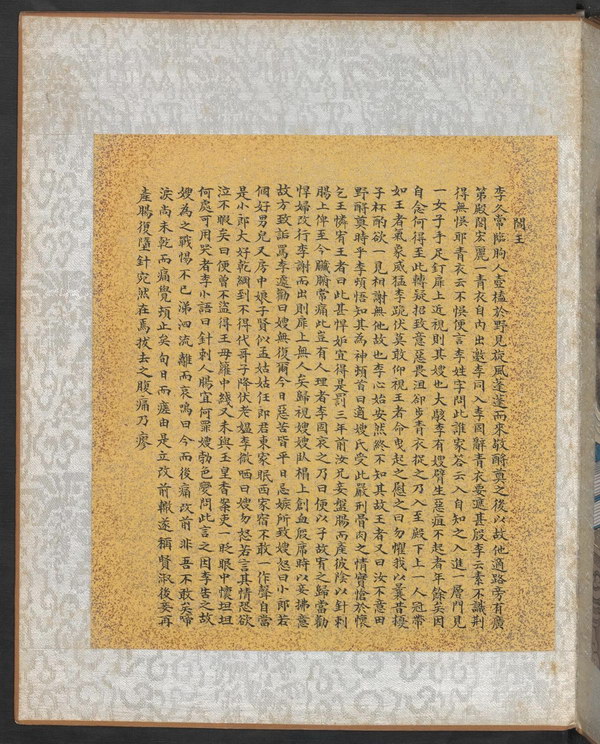 閻王
李久常臨朐人壺榼於野見旋風蓬蓬而來敬酹奠之後以故他適路旁有廣
第殿閣宏麗一青衣自內出邀李同入李固辭青衣要遮甚殷李云素不識荊
得無悞耶青衣云不悞便言李姓字問此誰家答云入自知之入進一層門見
一女子手足釘扉上近視則其嫂也大駭李有嫂臂生惡疽不起者年餘矣因
自念何得至此轉疑招致意惡畏沮卻步青衣促之乃入至殿下上一人冠帶
如王者氣象威猛李跪伏莫敢仰視王者命曳起之慰之曰勿懼我以曩昔擾
子杯酌欲一見相謝無他故也李心始安然終不知其故王者又曰汝不意田
野酹奠時乎李頓悟知其為神頓首曰適嫂氏受此嚴刑骨肉之情實愴於懷
乞王憐宥王者曰此甚悍妒宜得是罰三年前汝兄妾盤腸而產彼陰以針刺
腸上俾至今臟腑常痛此豈有人理者李固哀之乃曰便以子故宥之歸當勸
悍婦改行李謝而出則扉上無人矣歸視嫂嫂臥榻上創血殷席時以妾拂意
故方致詬罵李遽勸曰嫂無復爾今日惡苦皆平日忌嫉所致嫂怒曰小郎若
個好男兒又房中娘子賢似孟姑姑任郎君東家眠西家宿不敢一作聲自當
是小郎大好乾綱到不得代哥子降伏老媼李微哂曰嫂勿怒若言其情恐欲
泣不暇矣曰便曾不盜得王母籮中線又未與玉皇香案吏一眨眼中懷坦坦
何處可用哭者李小語曰針刺人腸宜何罪嫂勃色變問此言之因李告之故
嫂為之戰惕不已涕泗流離而哀鳴曰今而後痛改前非吾不敢矣啼
淚尚未乾而痛覺頓止矣旬日而瘥由是立改前轍遂稱賢淑後妾再
產腸復墮針宛然在焉拔去之腹痛乃瘳